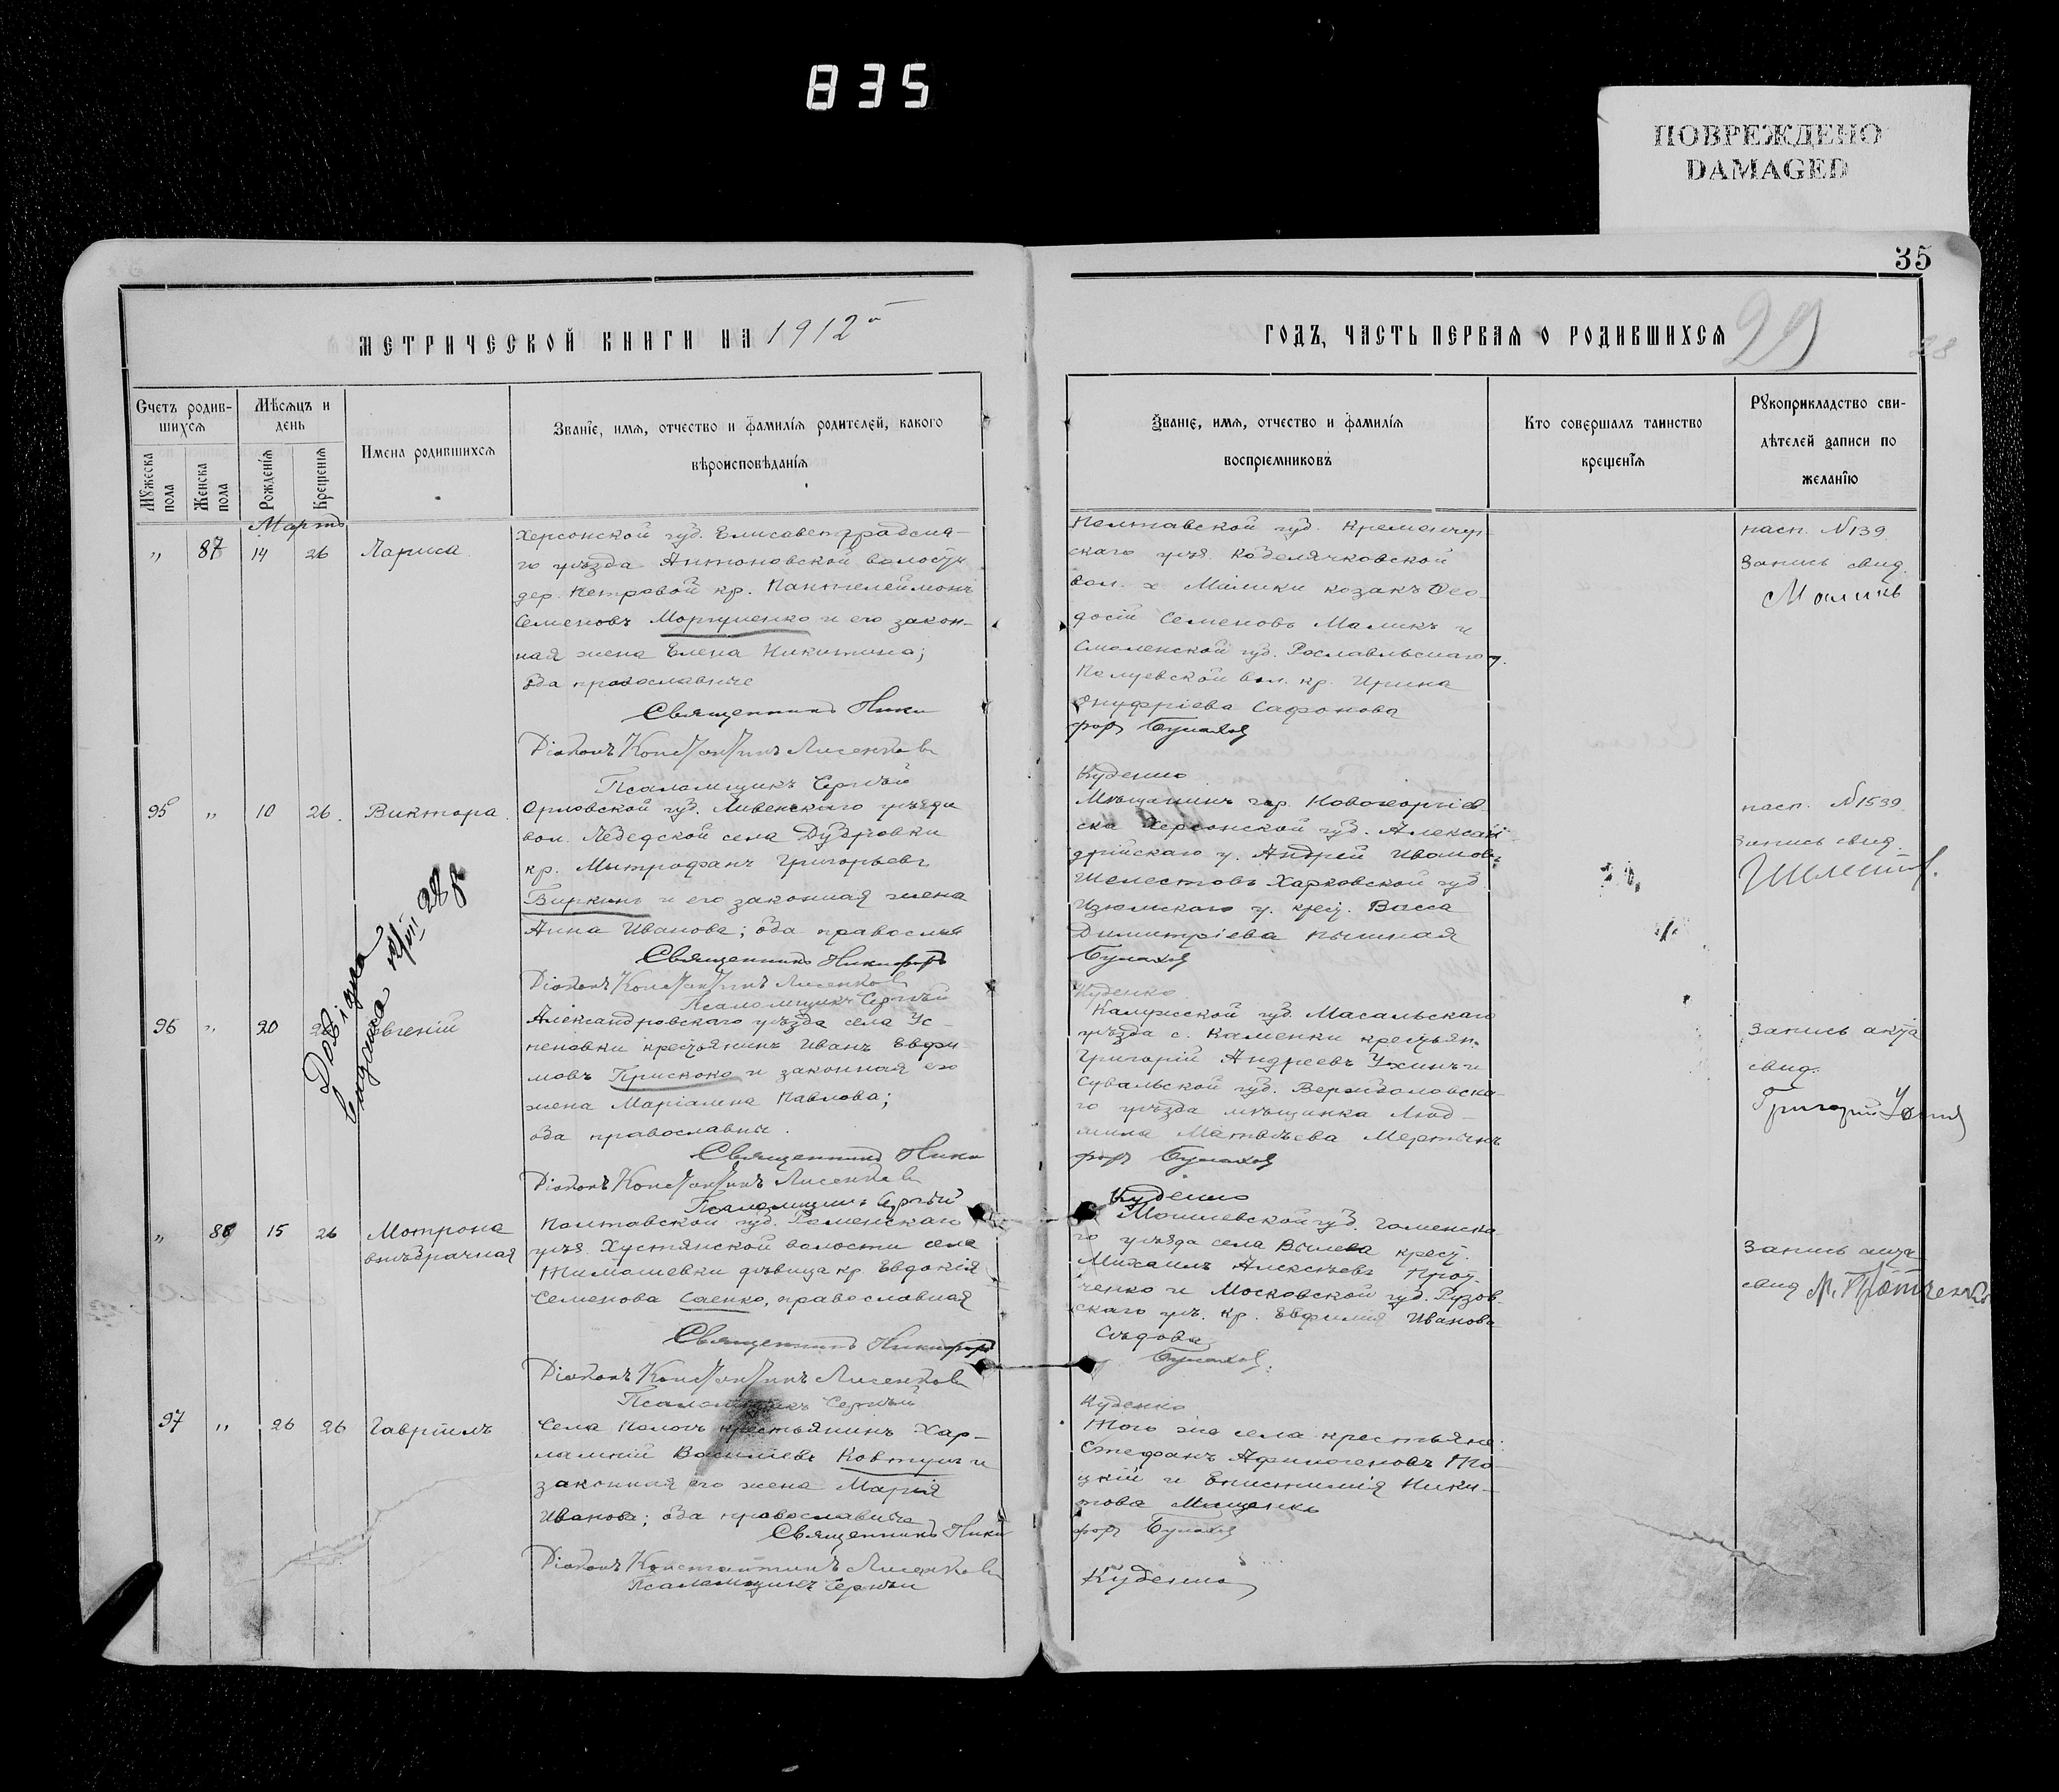 835
ПОВРЕЖДЕНО
DAMAGED
35
МЕТРИЧЕСКОЙ КНИГИ НА 1912
ГОДЪ, ЧАСТЬ ПЕРВАЯ О РОДИВШИХСЯ
29
28
Счетъ родив-
шихся
Мѣсяцъ и
день
Имена родившихся
Званіе, имя, отчество и фамилія родителей, какого
вѣроисповѣданія
Мужеска
пола
Женска
пола
Рожденія
Крещенія
Званіе, имя, отчество и фамилія
воспріемниковъ
Кто совершалъ таинство
крещенія
Рукоприкладство сви-
дѣтелей записи по
желанію
Мартъ
" 87 14 26 Лариса
Херсонской губ. Елисаветградска-
го уѣзда Антоновской волости
дер. Петровой кр. Пантелеймонъ
Семеновъ Моргуненко и его закон-
ная жена Елена Никитина;
оба православные
Священникъ Ники
Діаконъ Константинъ Лисенковъ
Псаломщикъ Сергѣй
Полтавской губ. Кременчуг-
скаго уѣз. Кобелячковской
вол. х. Малики козакъ Ѳео-
досій Семеновъ Маликъ и
Смоленской губ. Рославльскаго у.
вол. кр. Ирина
Онуфріева Сафонова
форъ Булаховъ
Куденко
пасп. №139
Запись свид.
Маликъ
95 " 10 26. Виктора.
Орловской губ. Ливенскаго уѣзда
вол. Лебедской села Дубровки
кр. Мытрофанъ Григорьевъ
Биркинъ и его законная жена
Анна Иванова; оба православ
Священникъ Никифоръ
Діаконъ Константинъ Лисенковъ
Псаломщикъ Сергѣй
Мѣщанинъ гор. Новогеоргіев
ска Херсонской губ. Алексан
дрійскаго у. Андрей Ивановъ
Шелестовъ Харковской губ
Изюмскаго у. крес. Васса
Димитріева
Булаховъ
Куденко
пасп. №1539
Запись свид.
Шелестовъ.
Довідка
видана
96 " 20 Евгеній
Александровскаго уѣзда села Ус-
пеновки крестьянинъ Иванъ Евфи
мовъ Прискоко и законная его
жена Маріамна Павлова;
оба православны.
Священникъ Ники
Діаконъ Константинъ Лисенковъ
Псаломщикъ Сергѣй
Калужской губ. Масальскаго
уѣзда с. Каменки крестьян.
Григорій Андреевъ Ухинъ и
Сувальской губ.
го уѣзда мѣщанка Люд-
мила Матвѣева
форъ Булаховъ
Куденко
Запись акта
свид.
Григорій
" 88 15 26 Мотрона
внѣбрачная
Полтавской губ. Роменскаго
уѣз. Хустянской волости села
Тимошевки дѣвица кр. Евдокія
Семенова Саенко, православная
Священникъ Никифоръ
Діаконъ Константинъ Лисенковъ
Псаломщикъ Сергѣй
Могилевской губ. Гоменска-
го уѣзда села крест.
Михаилъ Алексѣевъ Прот-
ченко и Московской губ. Рузов-
скаго уѣ. кр. Евфимія Иванова
Сѣдова
Булаховъ.
Куденко
Запись акта
свид. М. Протченко
97 " 26 26 Гавріилъ
Села Пологъ крестьянинъ Хар-
лампій Васильевъ Ковтунъ и
законная его жена Марія
Иванова; оба православные
Священникъ Ники
Діаконъ Константинъ Лисенковъ
Псаломщикъ Сергѣй
Того же села крестьяне:
Стефанъ Афиногеновъ То-
цкій и Епистимія Ники-
това Мищенко
форъ Булаховъ
Куденко